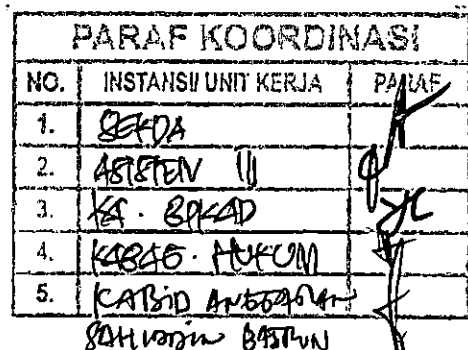 PARAF KOORDINASI
NO. INSTANSI/ UNIT KERJA PARAF
1. SEKDA
2. ASISTEN II
3. KA. BPKAD
4. KABAG. HUKUM
5. KABID ANGGARAN